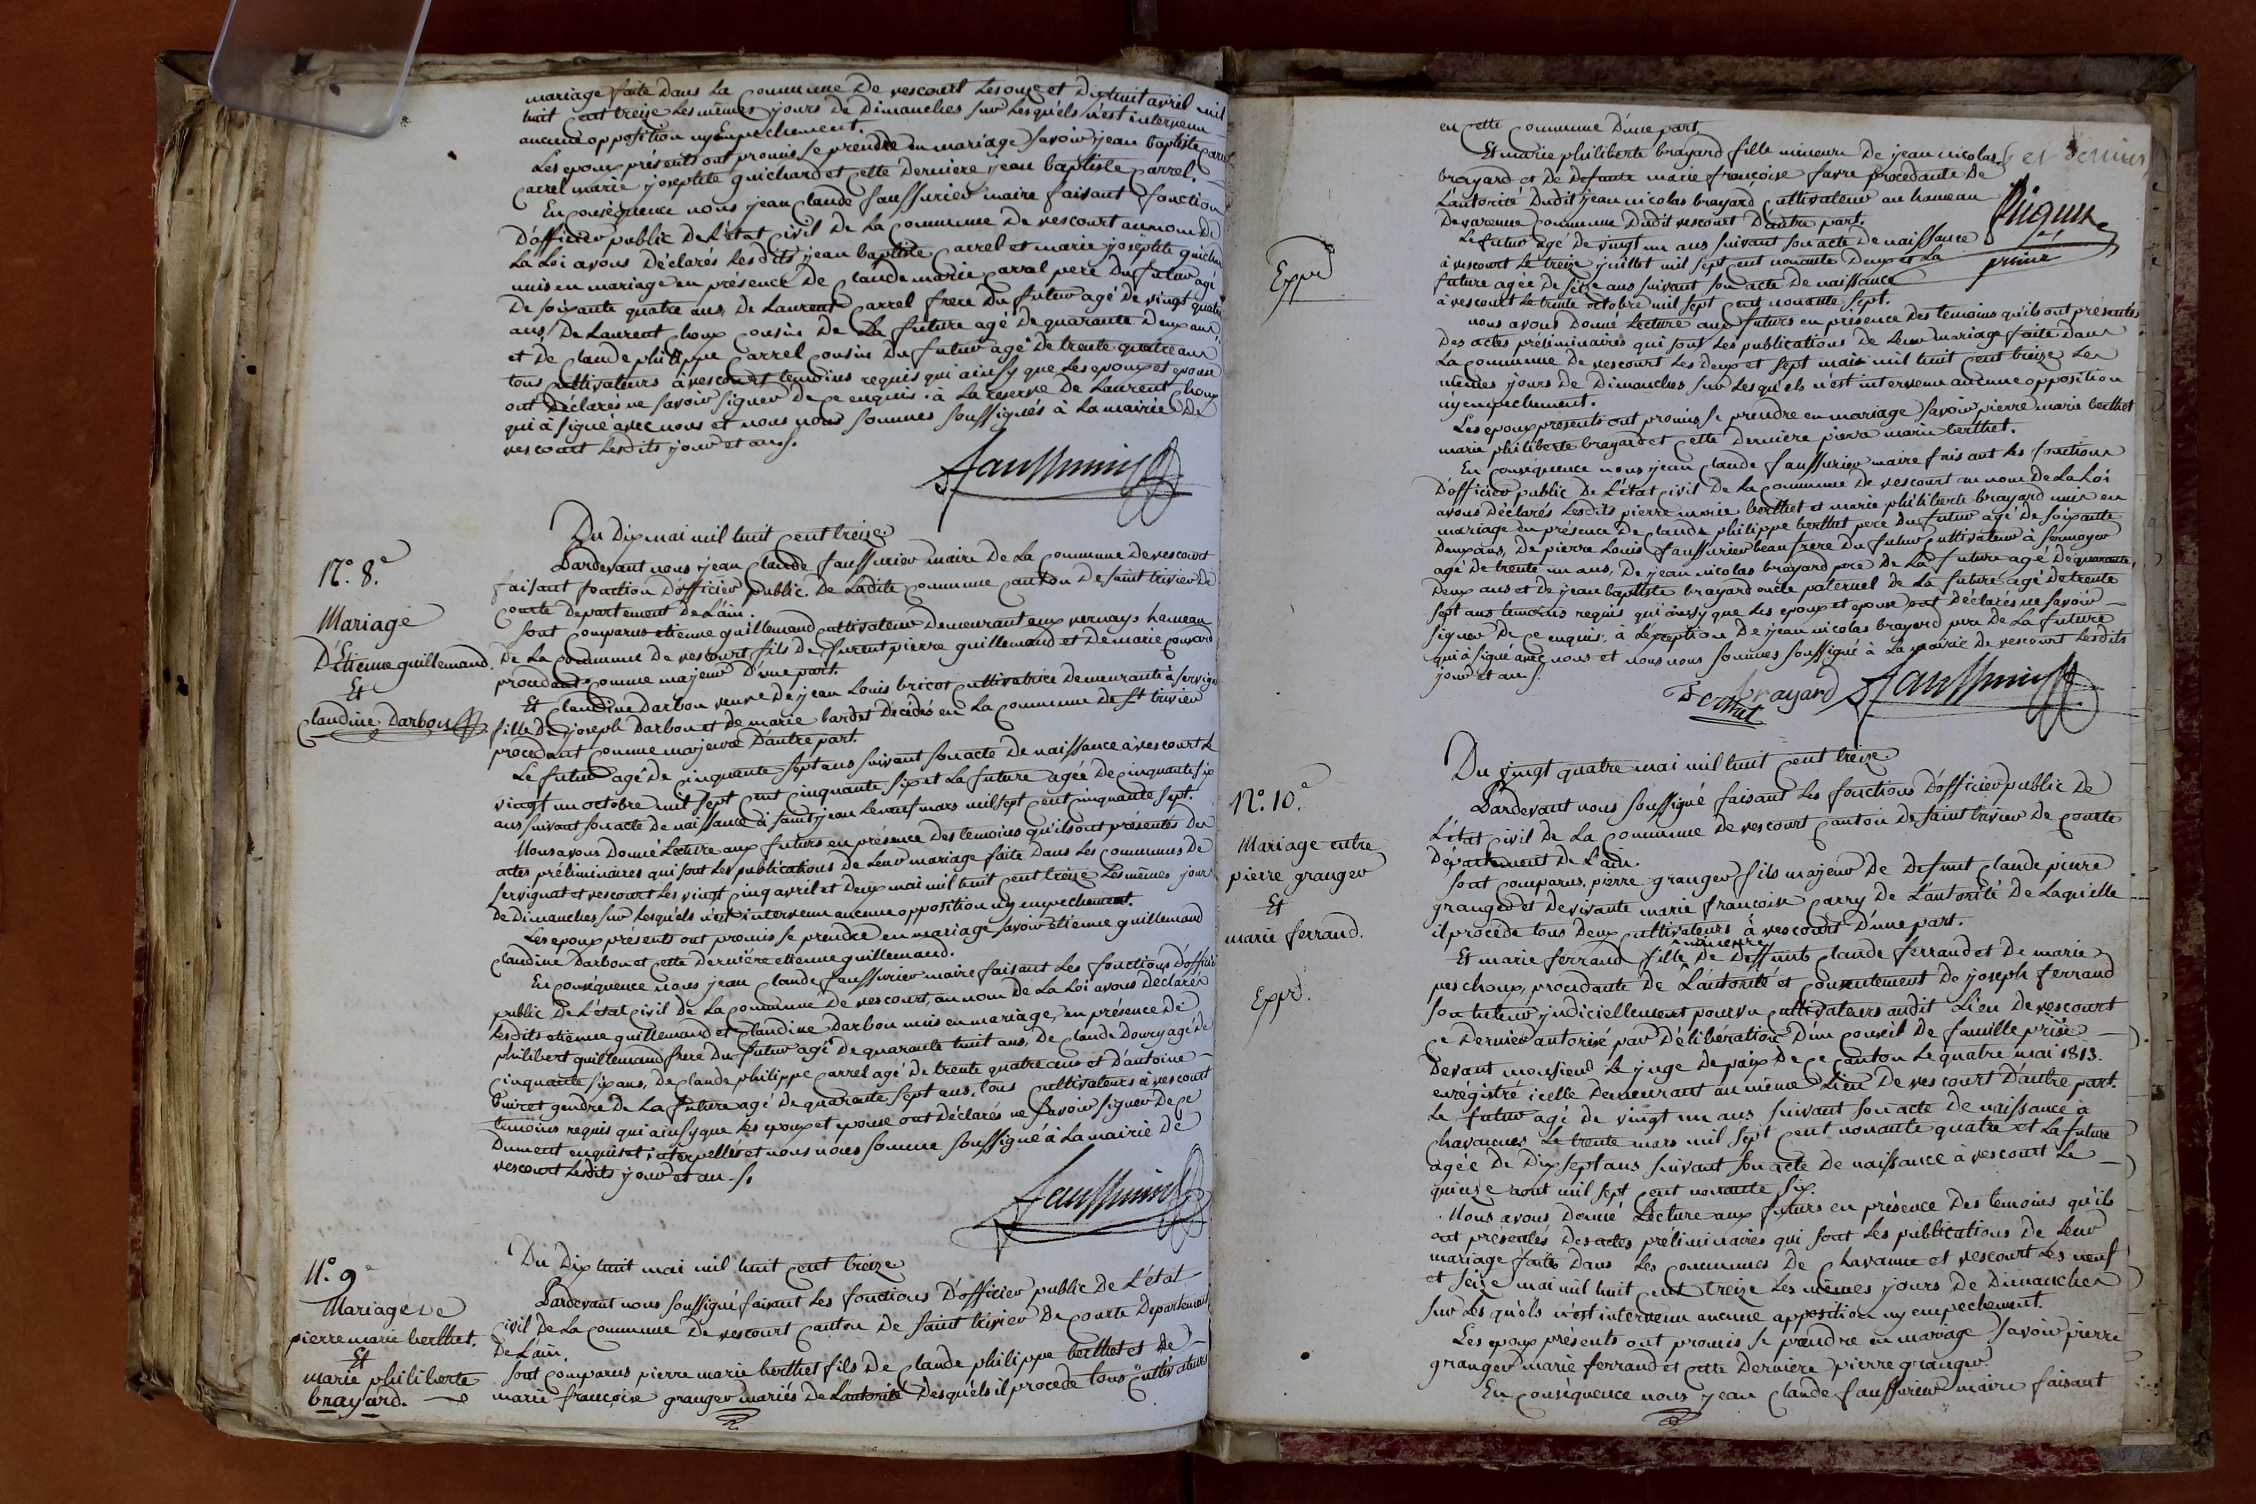 mariage faite dans la Commune De vescourt Les onze et Dixhuit avril mil
huit Cent treize Les mêmes jours de Dimanches sur Lesquels n'est intervenu
aucune opposition ny empechement.
Les epoux présents ont promis se prendre en mariage savoir jean baptiste Carrel
Carrel marie josephte guichard et Cette Derniere jean baptiste Carrel.
En Conséquence nous jean Claude faussurier maire faisant fonction
D'officier public De L'état Civil de La Commune De vescourt au nom De
La Loi avons Déclarés Lesdits jean baptiste Carrel et marie josephte guichard
unis en mariage en présence De Claude marie Carral pere Du futur agé
De soixante quatre ans, de Laurent Carrel frere Du futur agé De vingt quatre
ans, De Laurent Choux Cousin De La future agé De quarante Deux ans
et De Claude philippe Carrel Cousin Du futur agé De trente quatre ans
tous Cultivateurs à vescourt temoins requis qui ainsy que Les epoux et epouse
ont Déclarés ne savoir signer De Ce enquis. à La reserve De Laurent Choux
qui à signé avec nous et nous nous sommes soussignés à La mairie De
vescourt Lesdits jour et an s.
faussurier
N.° 8.e
Mariage
D'Etienne guillemand
Et
Claudine Darbon
Du Dix mai mil huit Cent treize
Pardevant nous jean Claude faussurier maire De La Commune De vescourt
faisant fonction D'officier public. De Ladite Commune Canton De saint trivier De
Courte departement De L'ain.
sont Comparus etienne guillemand Cultivateur Demeurant aux vernays hameau
De La Commune De vescourt fils De furent pierre guillemand et De marie Convard
procedant Comme majeur D'une part.
Et Claudine Darbon veuve De jean Louis bricot Cultivatrice Demeurante à servignat
fille De joseph Darbon et De marie bardet Décédés en La Commune De St. trivier
procedant Comme majeure D'autre part.
Le futur agé De Cinquante sept ans suivant son acte De naissance à vescourt Le
vingt un octobre mil sept Cent Cinquante six et La future agée De Cinquante six
ans suivant son acte De naissance à saint jean Le neuf mars mil sept Cent Cinquante sept.
Nous avons Donné Lecture aux futurs en présence Des temoins qu'ils ont présentés Des
actes préliminaires qui sont Les publications De Leur mariage faite Dans Les Communes De
servignat et vescourt Les vingt Cinq avril et Deux mai mil huit Cent treize Les mêmes jours
De Dimanches sur Lesquels n'est intervenu aucune opposition ny empechement.
Les epoux présents ont promis se prendre en mariage savoir etienne guillemand
Claudine Darbon et Cette Derniere etienne guillemand.
En Conséquence nous jean Claude faussurier maire faisant Les fonctions D'officier
public De L'état Civil De La Commune De vescourt, au nom De La Loi avons Déclarés
Lesdits etienne guillemand et Claudine Darbon unis en mariage, en présence De
philibert guillemand frere Du futur agé De quarante huit ans, De Claude Doury agé De
Cinquante six ans, De Claude philippe Carrel agé De trente quatre ans et D'antoine
buiret gendre De La future agé De quarante sept ans, tous Cultivateurs à vescourt
temoins requis qui ainsy que Les epoux et epouse ont Déclarés ne savoir signer De Ce
Dument enquis et interpellés et nous nous somme soussigné à La mairie De
vescourt Lesdits jour et an s.
faussurier
N.° 9.e
Mariage De
pierre marie berthet.
Et
marie philiberte
brayard.
Du Dix huit mai mil huit Cent treize
Pardevant nous soussigné faisant Les fonctions D'officier public De L'état
Civil De La Commune De vescourt Canton De saint trivier De Courte Departement
De L'ain.
sont Comparus pierre marie berthet fils De Claude philippe berthet et De
marie françoise granger mariés De L'autorité Desquels il procede tous Cultivateurs
en Cette Commune D'une part.
Et marie philiberte brayard fille mineure De jean nicolas
brayard et De Defunte marie françoise favre procedante De
L'autorité Dudit jean nicolas brayard Cultivateur au hameau
De varenne Commune Dudit vescourt D'autre part.
Le futur agé De vingt un ans suivant son acte De naissance
à vescourt Le treize juillet mil sept Cent nonante Deux et La
future agée De seize ans suivant son acte De naissance
à vescourt Le trente octobre mil sept Cent nonante sept.
et dernier
Expé
nous avons Donné Lecture aux futurs en présence Des temoins qu'ils ont présentés
Des actes préliminaires qui sont Les publications De Leur mariage faite Dans
La Commune De vescourt Les Deux et sept mai mil huit Cent treize Les
mêmes jours De Dimanches sur Lesquels n'est intervenu aucune opposition
ny empechement.
Les epoux présents ont promis se prendre en mariage savoir pierre marie berthet
marie philiberte brayard et Cette Derniere pierre marie berthet.
En Conséquence nous jean Claude faussurier maire faisant Les fonctions
D'officier public De L'état Civil De La Commune De vescourt au nom De La Loi
avons Déclarés Lesdits pierre marie berthet et marie philiberte brayard unis en
mariage en présence De Claude philippe berthet pere Du futur agé De soixante
Deux ans, De pierre Louis faussurier beau frere Du futur Cultivateur à sermoyer
agé De trente un ans, De jean nicolas brayard pere De La future agé De quarante
Deux ans et De jean baptiste brayard oncle paternel De La future agé De trente
sept ans temoins requis qui ainsy que Les epoux et epouse ont Déclarés ne savoir
signer De Ce enquis. à L'éxception De jean nicolas brayard pere De La future
qui à signé avec nous et nous nous sommes soussigné à La mairie De vescourt Lesdits
jour et an s.
brayard faussurier
N.° 10.e
Mariage entre
pierre granger
Et
marie ferrand.
Expé.
Du vingt quatre mai mil huit Cent treize
Pardevant nous soussigné faisant Les fonctions D'officier public De
L'état Civil De La Commune De vescourt Canton De saint trivier De Courte
Département De L'ain.
sont Comparus, pierre granger fils majeur De Defunt Claude pierre
granger et De vivante marie françoise Carry De L'autorité De Laquelle
il procede tous Deux Cultivateurs à vescourt D'une part.
Et marie ferrand fille mineure De Deffunts Claude ferrand et De marie
peschoux, procedante De L'autorité et Consentement De joseph ferrand
son tuteur judiciellement pourvu Cultivateurs audit Lieu De vescourt
Ce Dernier autorisé par Délibération D'un Conseil De famille prise
Devant monsieur Le juge De paix De Ce Canton Le quatre mai 1813.
enrégistré icelle Demeurant au même Lieu De vescourt D'autre part.
Le futur agé De vingt un ans suivant son acte De naissance à
Chavannes Le trente mars mil sept Cent nonante quatre et La future
agée De Dix sept ans suivant son acte De naissance à vescourt Le
quinze aout mil sept Cent nonante six.
Nous avons Donné Lecture aux futurs en présence Des temoins qu'ils
ont présentés Des actes préliminaires qui sont Les publications De Leur
mariage faite Dans Les Communes De Chavanne et vescourt Les neuf
et seize mai mil huit Cent treize Les mêmes jours De Dimanches
sur Lesquels n'est intervenu aucune opposition ny empechement.
Les epoux présents ont promis se prendre en mariage savoir pierre
granger marie ferrand et Cette Derniere pierre granger.
En Conséquence nous jean Claude faussurier maire faisant